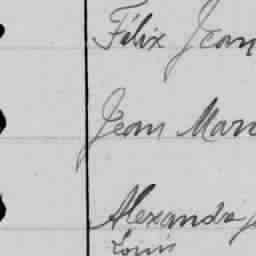 Félix Jean
Jean Marc
Alexandre J
Louis